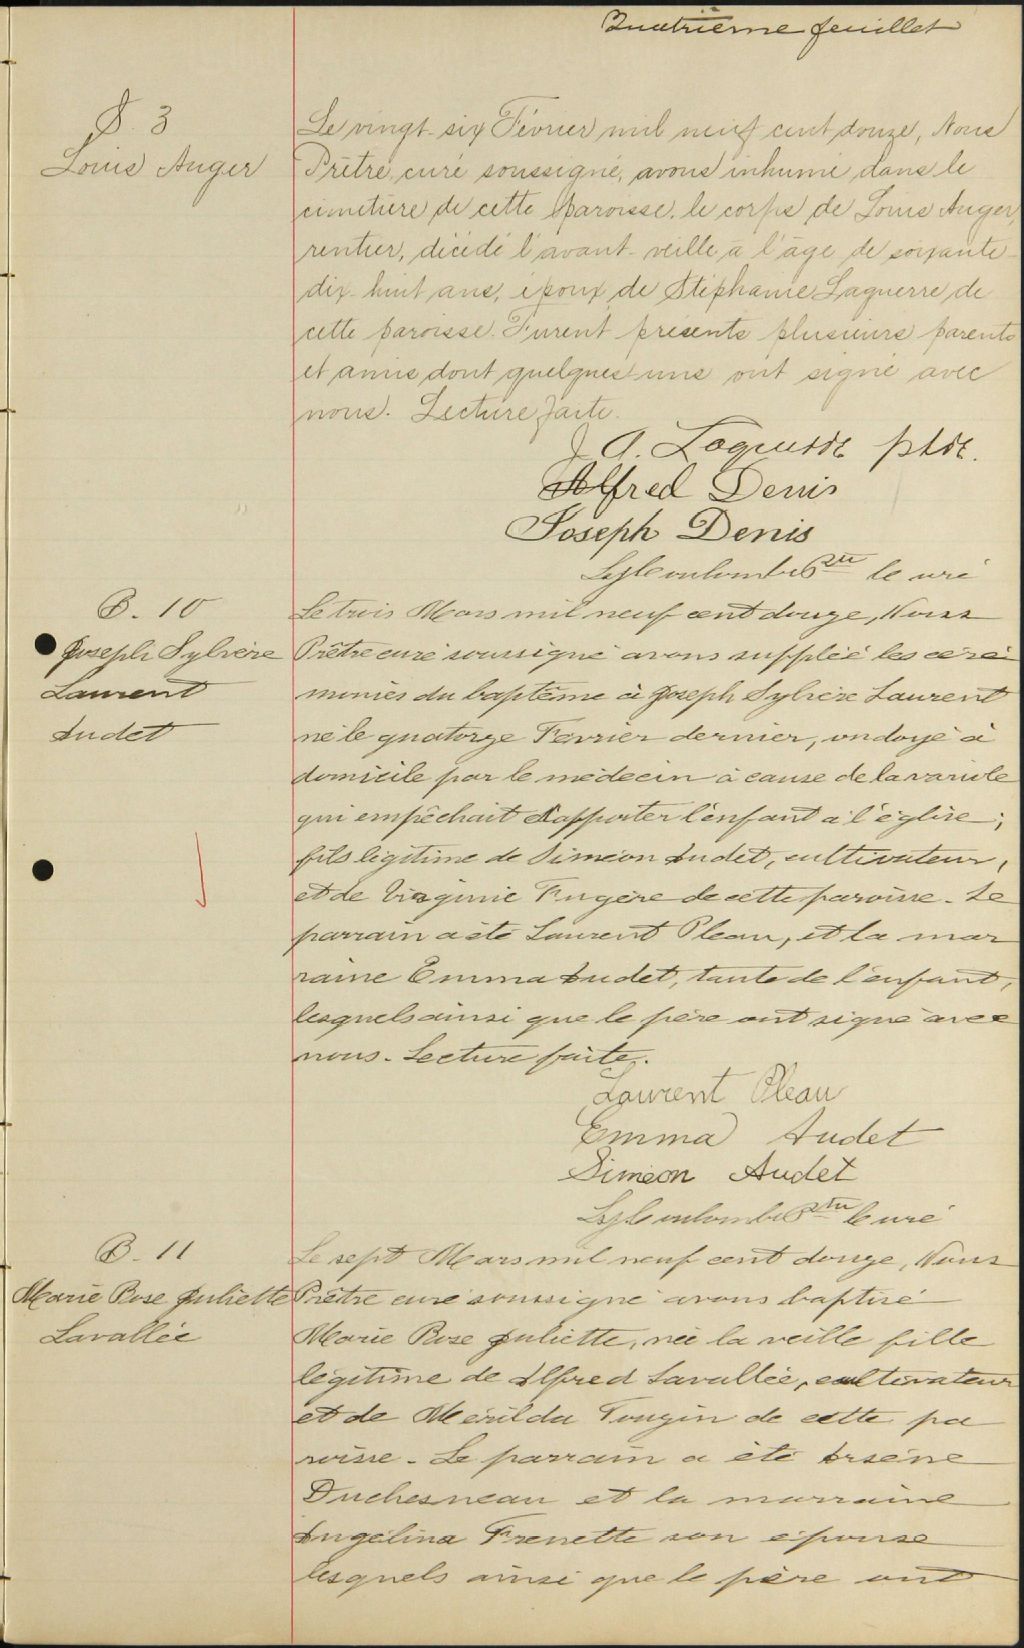 Quatrième feuillet
S. 3
Louis Auger
Le vingt-six Février mil neuf cent douze, Nous
Prêtre, curé soussigné, avons inhumé dans le
cimetière de cette paroisse, le corps de Louis Auger,
rentier, décédé l'avant-veille à l'âge de soixante-
dix-huit ans, époux de Stéphanie Laguerre de
cette paroisse. Furent présents plusieurs parents
et amis dont quelques uns ont signé avec
nous. Lecture faite.
J A. Laguerre ptre.
Alfred Denis
Joseph Denis
Ptre curé
B. 10
Joseph Sylvère
Laurent
Audet
Le trois Mars mil neuf cent douze, Nous
Prêtre curé soussigné avons supplée les céré
monies du baptême à Joseph Sylvère Laurent
né le quatorze Février dernier, ondoyé à
domicile par le médecin à cause de la variole
qui empêchait d'apporter l'enfant à l'église;
fils légitime de Siméon Audet, cultivateur,
et de Virginie Fugère de cette paroisse. Le
parrain a été Laurent Pleau, et la mar
raine Emma Audet, tante de l'enfant,
lesquels ainsi que le père ont signé avec
nous. Lecture faite.
Laurent Pleau
Emma Audet
Siméon Audet
Ptre curé
B. 11
Marie Rose Juliette
Lavallée
Le sept Mars mil neuf cent douze, Nous
Prêtre curé soussigné avons baptisé
Marie Rose Juliette, née la veille fille
légitime de Alfred Lavallée, cultivateur
et de Mérilda Tougin de cette pa
roisse. Le parrain a été Arsène
Duchesneau et la marraine
Angélina Frenette son épouse
lesquels ainsi que le père ont